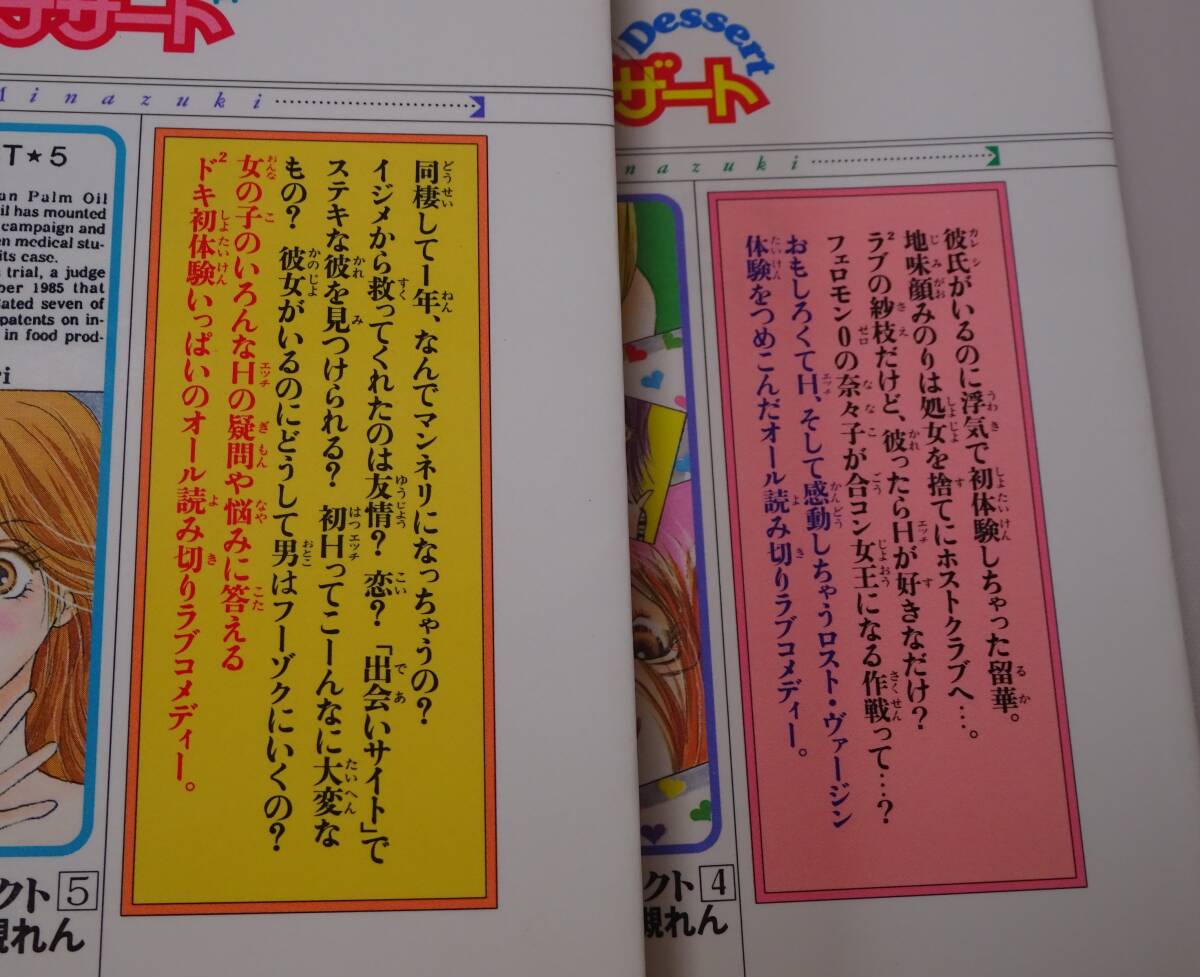 ザーブ
Minazuki
ST★5
an Palm Oil
il has mounted
campaign and
en medical stu-
its case.
s trial, a judge
ber 1985 that
lated seven of
patents on in-
in food prod-
同棲して一年、なんでマンネリになっちゃうの?
イジメから救ってくれたのは友情? 恋? 「出会いサイト」で
ステキな彼を見つけられる? 初Hってこーんなに大変な
もの? 彼女がいるのにどうして男はフーゾクにいくの?
女の子のいろんなHの疑問や悩みに答える
ドキ²初体験いっぱいのオール読み切りラブコメディー。
クト5
規れん
Dessert
ザーブ
nazuki
彼氏がいるのに浮気で初体験しちゃった留華。
地味顔みのりは処女を捨てにホストクラブへ…。
ラブ²の紗枝だけど、彼ったらHが好きなだけ?
フェロモン0の奈々子が合コン女王になる作戦って…?
おもしろくてH、そして感動しちゃうロスト・ヴァージン
体験をつめこんだオール読み切りラブコメディー。
クト4
規れん